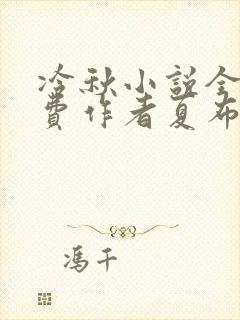 冷秋小説全
費作者夏布
馮千